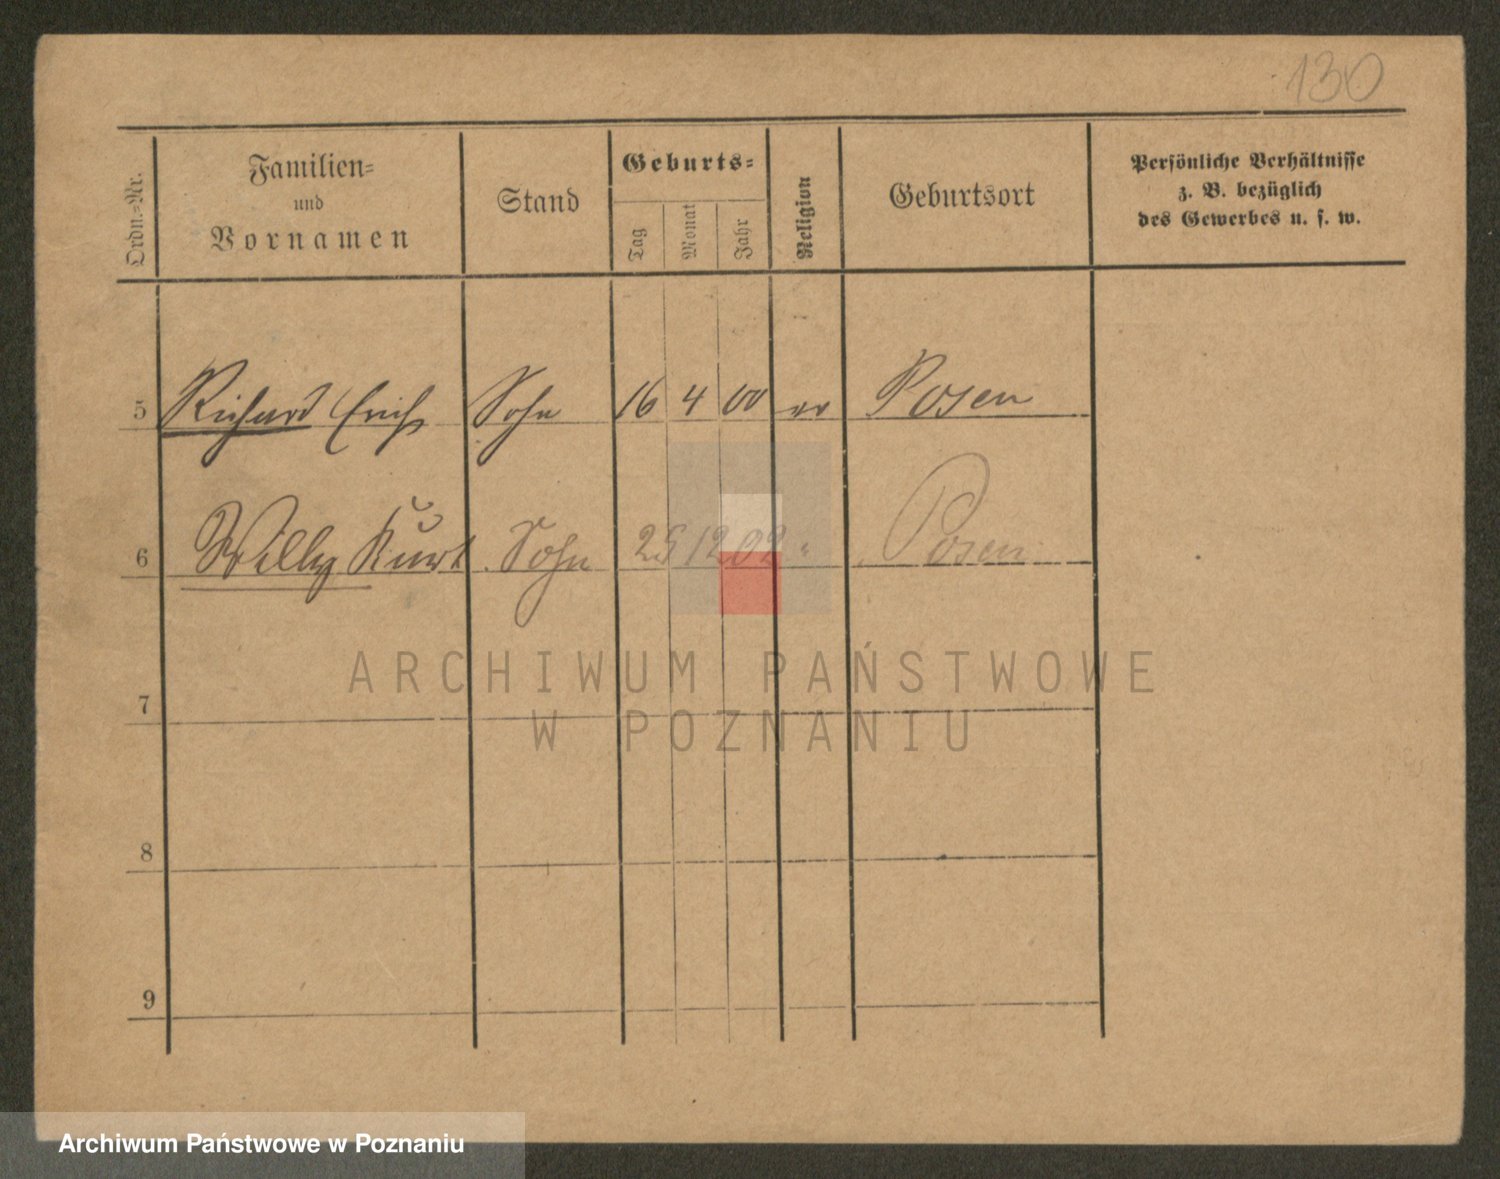 130
Ordn.-Nr.
Familien-
und
Vornamen
Stand
Geburts-
Tag
Monat
Jahr
Religion
Geburtsort
Persönliche Verhältnisse
z. B. bezüglich
des Gewerbes u. s. w.
5 Richard Erich Sohn 16 4 00 ev Posen
6 Willy Kurt Sohn 25 12 02 " Posen
7
8
9
ARCHIWUM PAŃSTWOWE
W POZNANIU
Archiwum Państwowe w Poznaniu